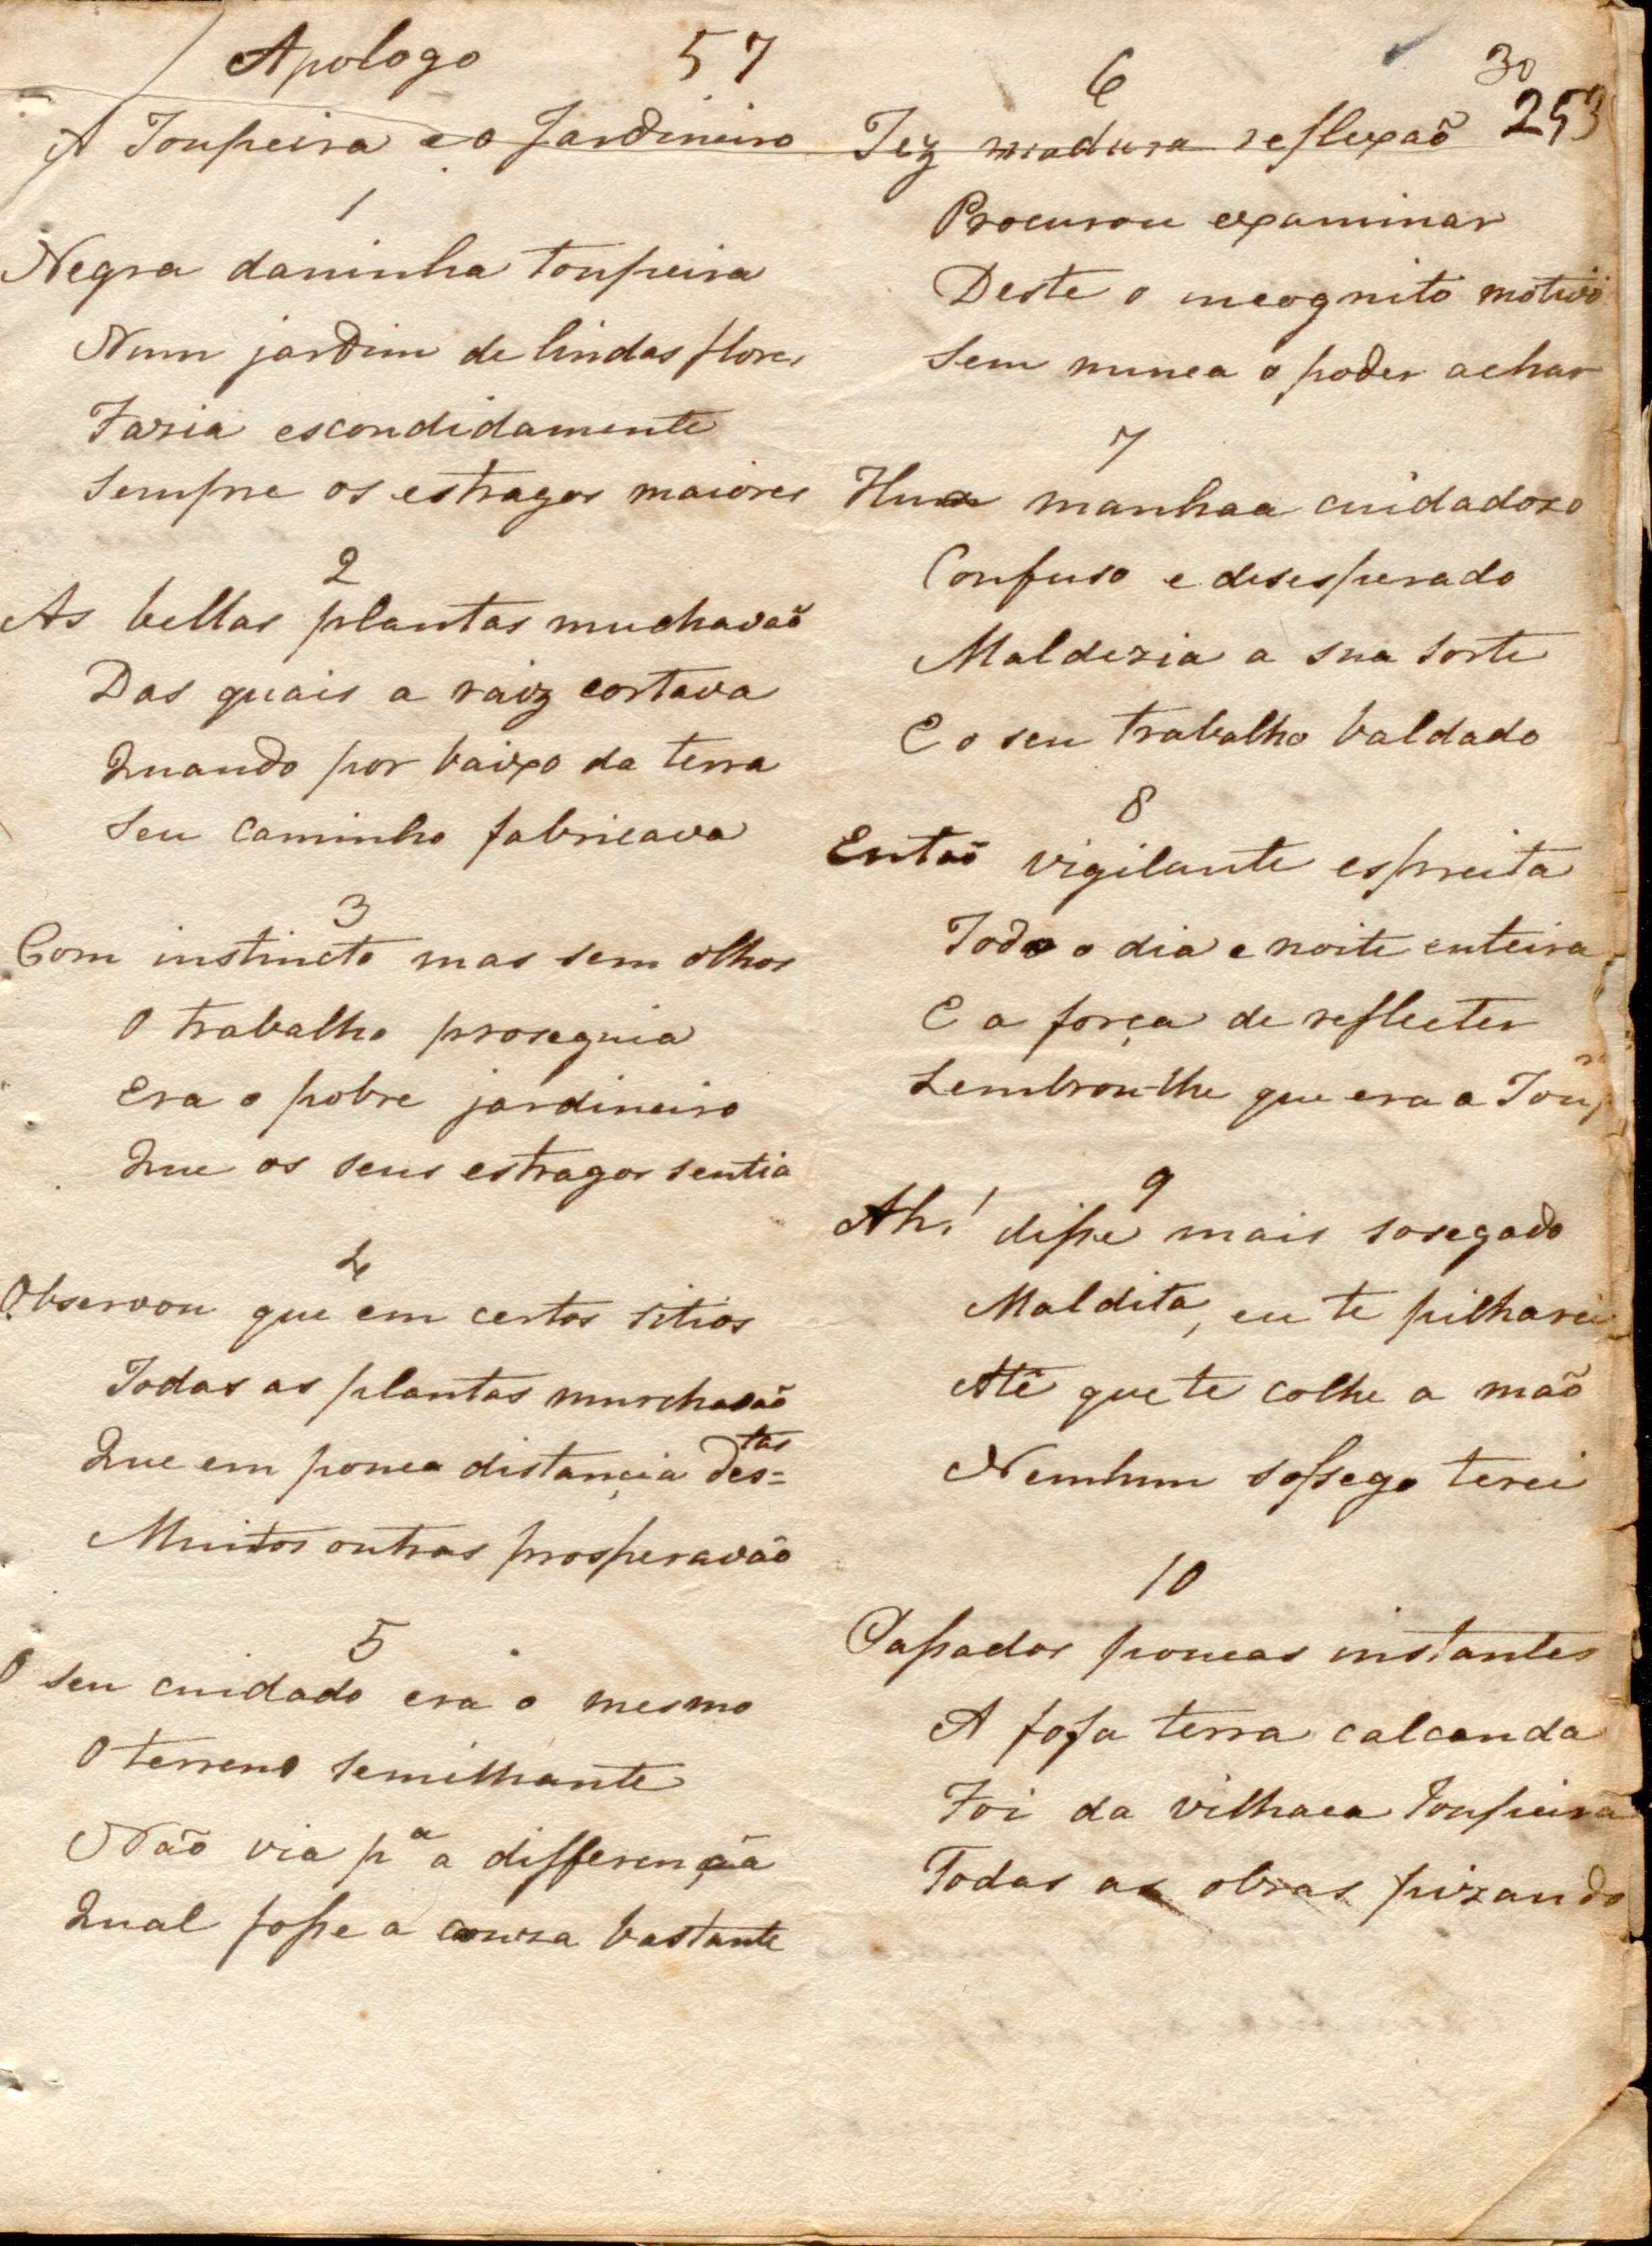 Apologo 57
A Toupeira e o Jardineiro
1
Negra daninha toupeira
Num jardim de lindas flores
Fazia escondidamente
Sempre os estragos maiores
2
As bellas plantas muchavaõ
Das quais a raiz cortava
Quando por baixo da terra
Seu caminho fabricava
3
Com instincto mas sem olhos
O trabalho proseguia
Era o pobre jardineiro
Que os seus estragos sentia
4
Observou que em certos sitios
Todas as plantas murchavaõ
Que em pouca distancia des=tas
Muitos outras prosperavão
5
O seu cuidado era o mesmo
O terreno semilhante
Não via pª a differença
Qual fosse a couza bastante
30
253
6
Fez madura reflexaõ
Procurou examinar
Deste o incognito motivo
Sem nunca o poder achar
7
Huā manhaa cuidadozo
Confuso e desesperado
Maldezia a sua sorte
E o seu trabalho baldado
8
Entaõ vigilante espreita
Todo o dia e noite enteira
E a força de reflecter
Lembrou-lhe que era a Toup
9
Ah! disse mais sosegado
Maldita, eu te pilharei
Até que te colhe a mão
Nemhum sossego terei
10
Passados poucas instantes
A fofa terra calcanda
Foi da vilhaca Toupeira
Todas as obras pizando